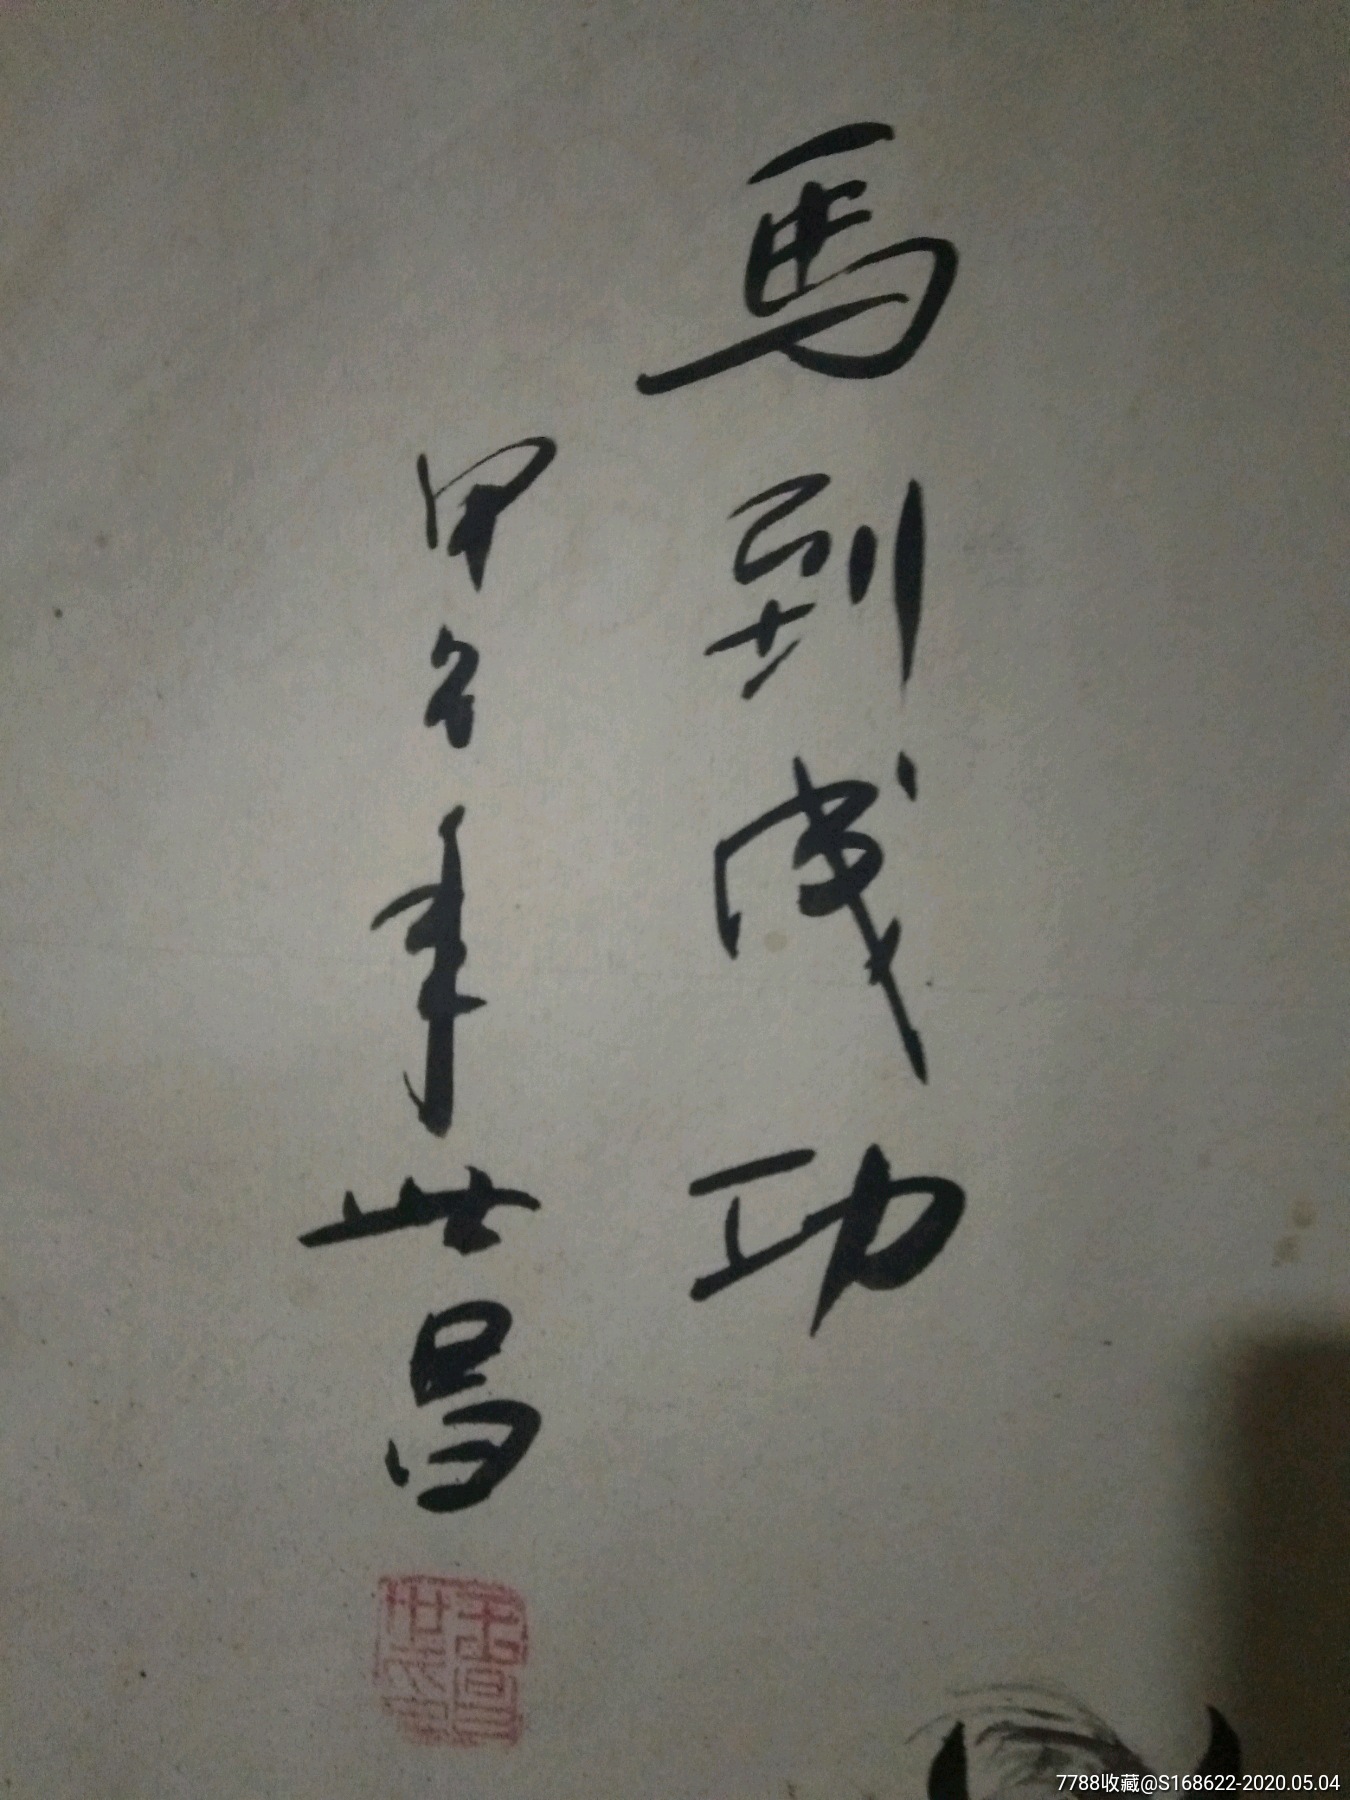 馬到成功
甲午年世昌
7788收藏@S168622-2020.05.04